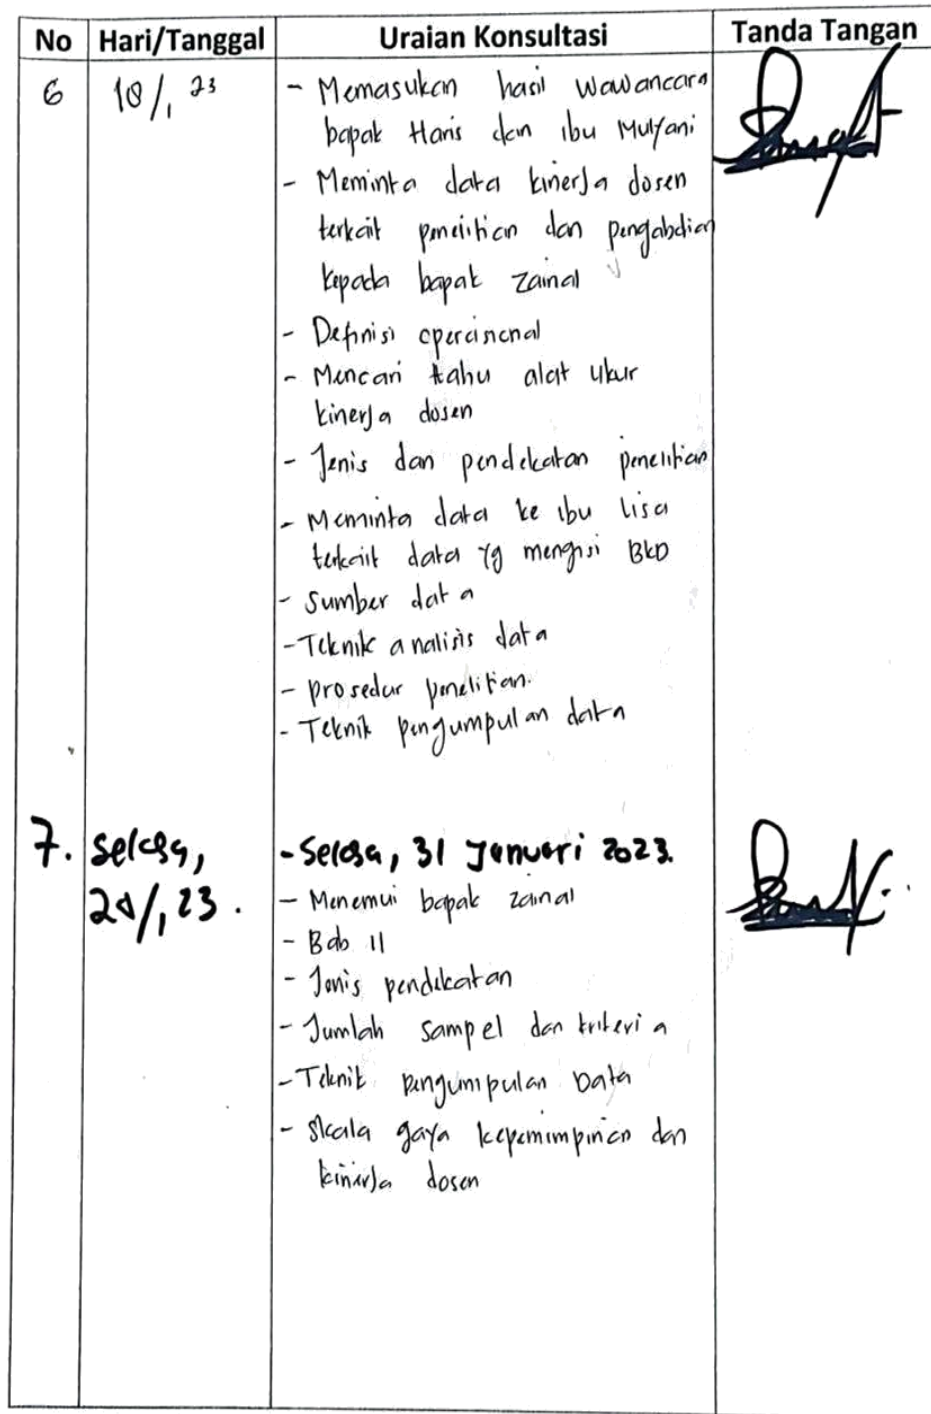 No Hari/Tanggal Uraian Konsultasi Tanda Tangan
6 18/1 23 - Memasukan hasil wawancara
bapak Haris dan ibu Mulyani
- Meminta data kinerja dosen
terkait penelitian dan pengabdian
kepada bapak zainal
- Definisi operasional
- Mencari tahu alat ukur
kinerja dosen
- Jenis dan pendekatan penelitian
- Meminta data ke ibu lisa
terkait data yg mengisi BKD
- Sumber data
- Teknik analisis data
- prosedur penelitian.
- Teknik pengumpulan data
7. selasa, - Selasa, 31 Januari 2023.
/1 23. - Menemui bapak zainal
- Bab II
- Jenis pendekatan
- Jumlah sampel dan kriteria
- Teknik pengumpulan Data
- Skala gaya kepemimpinan dan
kinerja dosen